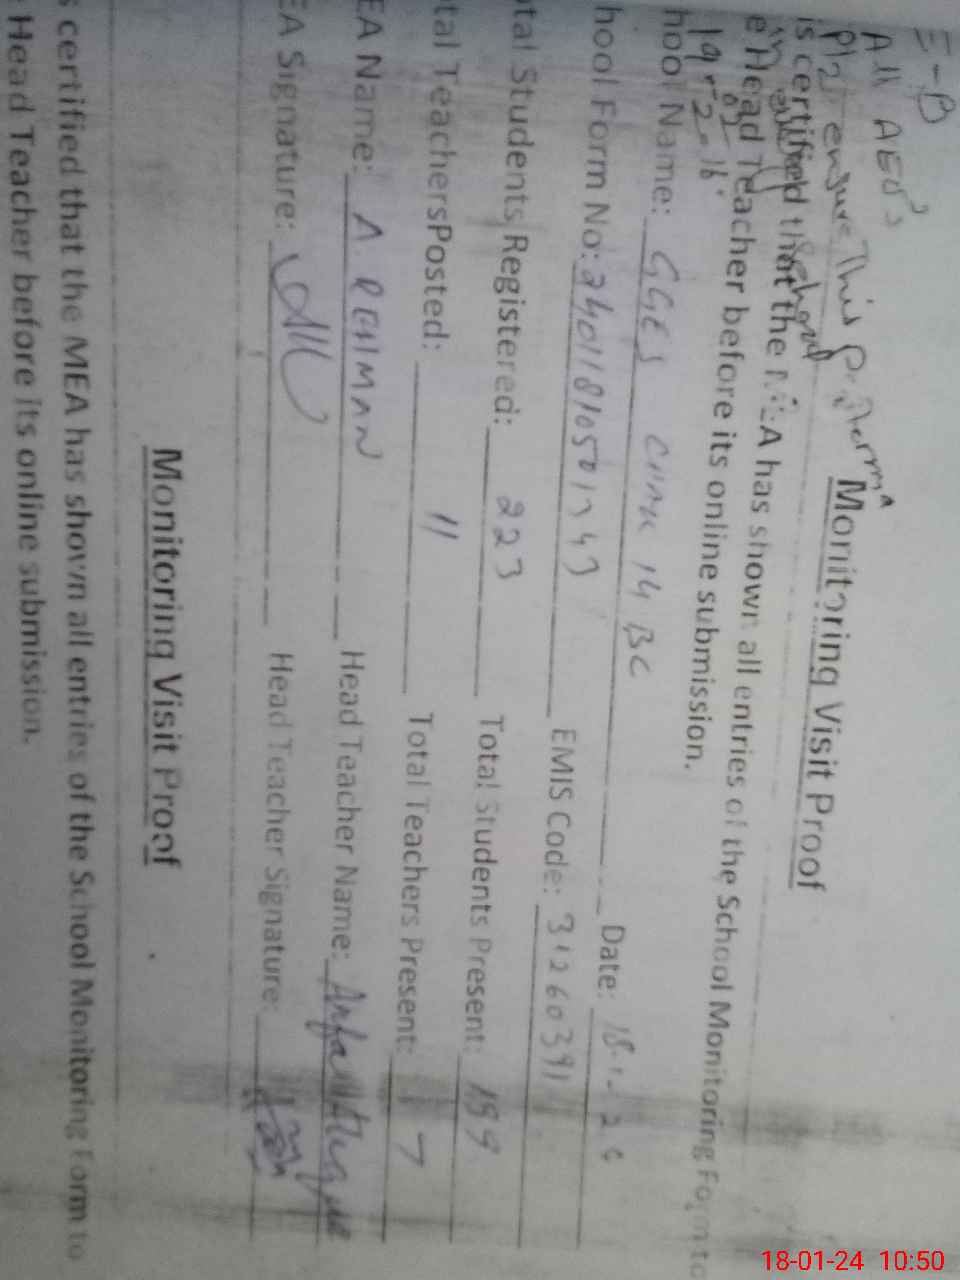 E-B
All AEO's
Plz ensure This Proforma
Monitoring Visit Proof
is certified that the MEA has shown all entries of the School Monitoring Form to
e Head Teacher before its online submission.
hool Name: GGES CHAK 14 BC Date: 18-1-24
hool Form No: EMIS Code: 31260391
otal Students Registered: 223 Total Students Present: 199
tal TeachersPosted: 11 Total Teachers Present: 7
EA Name: A. REHMAN Head Teacher Name:
EA Signature: Head Teacher Signature:
Monitoring Visit Proof
s certified that the MEA has shown all entries of the School Monitoring Form to
Head Teacher before its online submission.
18-01-24 10:50